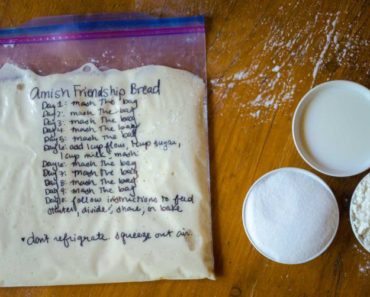 Amish Friendship Bread
Day 1: mash the bag
Day 2: mash the bag
Day 3: mash the bag
Day 4: mash the bag
Day 5: mash the bag
Day 6: add 1 cup flour, 1 cup sugar,
1 cup milk. mash
Day 7: mash the bag
Day 8: mash the bag
Day 9: mash the bag
Day 10: follow instructions to feed
starter, divide, share, or bake
*don't refrigrate. squeeze out air.